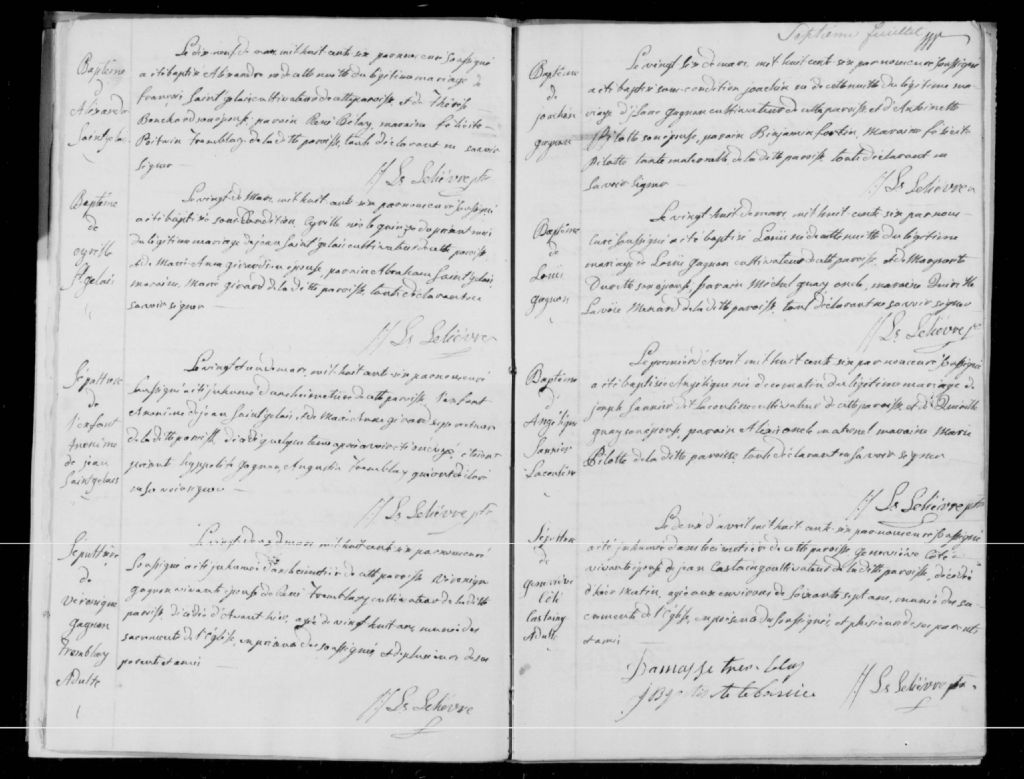 Baptême
d'
Alexandre
Saintgelai
Le dix neuf de mars mil huit cents six par nous curé soussigné
a été baptisé Alexandre né de cette nuitte du légitime mariage de
françois Saint gelai cultivateur de cette paroisse et de Thérèse
Bouchard son épouse, parain René Bolay, maraine félicité
Poitvin Tremblay, de la ditte paroisse, touts déclarant ne savoir
signer
H Ls Lelièvre ptr
Baptême
de
cyrille
St gelai
Le vingt de Mars, mil huit cents six par nous curé soussigné
a été baptisé sous Condition Cyrille né le quinze du présent mois
du légitime mariage de jean Saint gelai cultivateur de cette paroisse
et de Marie Anne girard son épouse, parain Abraham Saint gelai,
maraine, Marie girard de la ditte paroisse, touts déclarant ne
savoir signer
H Ls Lelièvre
Sépulture
de
l'enfant
Anonime
de jean
Saint gelais
Le vingt et un de mars, mil huit cents six par nous curé
soussigné a été inhumé dans le cimetière de cette paroisse l'enfant
Anonime de jean Saint gelai, et de Marie Anne girard
de la ditte paroisse, décédé quelque tems après avoir été ondoyé, étoient
présent hyppolite gagnon, Augustin Tremblay qui ont déclaré
ne savoir signer
H Ls Lelièvre ptr
Sépulture
de
véronique
gagnon
Tremblay
Adulte
Le vingt deux de mars mil huit cents six par nous curé
soussigné a été inhumé dans le cimetière de cette paroisse Véronique
gagnon vivante épouse de Tremblay cultivateur de la ditte
paroisse, décédée d'avant hier, agée de vingt huit ans, munie des
sacrements de l'église, en présence du soussigné, et de plusieurs de ses
parents et amis
H Ls Lelievre
Septième feuillet
Baptême
de
joachim
gagnon
Le vingt six de mars, mil huit cents six par nous curé soussigné
a été baptisé sous-condition joachim né de cette nuitte du légitime ma-
riage d'Isaac gagnon cultivateur de cette paroisse et d'Antoinette
Pilotte son épouse, parain Binjamin fortin, Maraine félicité
Pilotte tante maternelle de la ditte paroisse touts déclarant ne
savoir signer
H Ls Lelièvre
Baptême
de
Louis
gagnon
Le vingt huit de mars, mil huit cents six par nous
curé soussigné a été baptisé Louis né de cette nuitte du légitime
mariage de Louis gagnon cultivateur de cette paroisse, et de Margueritte
son épouse, parain Michel guay oncle, maraine
Lavoie Menard de la ditte paroisse, touts déclarant ne savoir signer
H Ls Lelièvre ptr
Baptême
d'
Angélique
Sannier
Lacouline
Le premier d'Avril mil huit cents six par nous curé soussigné
a été baptisée Angélique née de ce matin du légitime mariage de
joseph Sannier dit Lacouline cultivateur de cette paroisse et de
guay son épouse, parain Alexis oncle maternel maraine Marie
Pilotte de la ditte paroisse, touts déclarant ne savoir signer
H Ls Lelièvre ptr
Sépulture
de
Geneviève
Côté
Castaing
Adulte
Le deux d'avril mil huit cents six par nous curé soussigné
a été inhumé dans le cimetière de cette paroisse Geneviève Côté
vivante épouse de jean Castaing cultivateur de la ditte paroisse, décédée
d'hier matin, agée aux environs de soixante sept ans, munie des sa-
crements de l'église, en présence du soussigné, et plusieurs de ses parents
et amis
Damasse tremblay
H Ls Lelièvre ptr